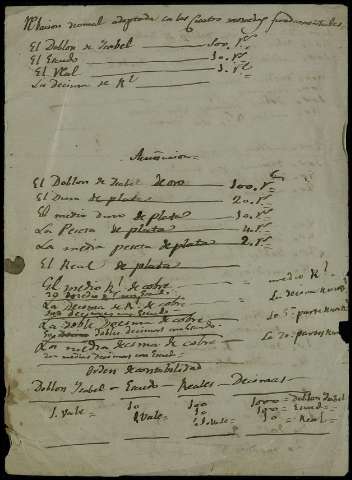 Relacion decimal adoptada en las cuatro monedas fundamentales
El Doblon de Isabel 100. rs
El Escudo 10. rs
El Real 1. rl
La decima de Rl
Acuñacion =
El Doblon de Isabel de oro 100. rs
El Duro de plata 20. rs
El medio Duro de plata 10. rs
La Peseta de plata 4. rs
La media peseta de plata 2. rs
El Real de plata
El medio Rl de cobre medio Rl
La Decima de Rl de cobre La decima
La Doble Decima de cobre La 5ª parte
dobles decimas
La media decima de cobre La 20ª parte
dos medias decimas
Orden de contabilidad
Doblon Isabel = Escudo = Reales = Decimas =
1. Vale = 10 100 1000 = Doblon Isabel
1. Vale = 10 100 = Escudo =
1. Vale = 10 = Real =